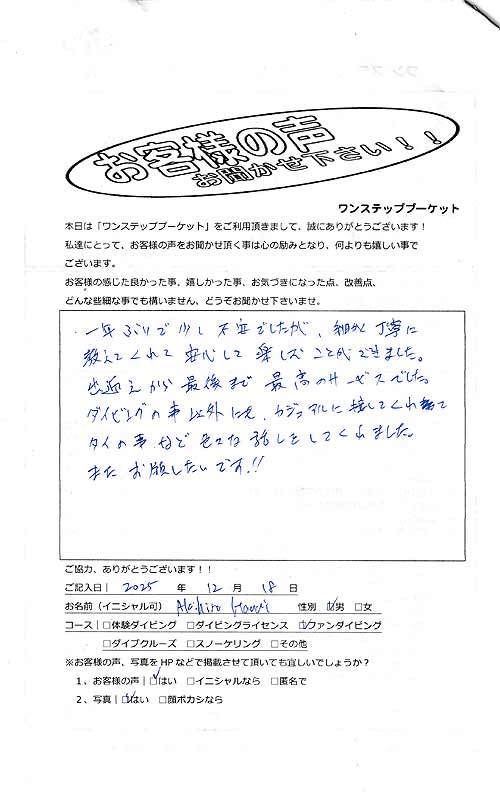 お客様の声
お聞かせ下さい！！
ワンステッププーケット
本日は「ワンステッププーケット」をご利用頂きまして、誠にありがとうございます！
私達にとって、お客様の声をお聞かせ頂く事は心の励みとなり、何よりも嬉しい事で
ございます。
お客様の感じた良かった事、嬉しかった事、お気づきになった点、改善点、
どんな些細な事でも構いません、どうぞお聞かせ下さいませ。
一年ぶりで少し不安でしたが、細かく丁寧に
教えてくれて安心して楽しむことができました。
出迎えから最後まで最高のサービスでした。
ダイビングの事以外にも、カジュアルに接してくれて
タイの事など色々な話しをしてくれました。
またお願したいです!!
ご協力、ありがとうございます！！
ご記入日｜ 2025 年 12 月 18 日
お名前（イニシャル可） Akihiro 性別 ☑男 □女
コース｜□体験ダイビング □ダイビングライセンス ☑ファンダイビング
□ダイブクルーズ □スノーケリング □その他
※お客様の声、写真をHPなどで掲載させて頂いても宜しいでしょうか？
1、お客様の声｜☑はい □イニシャルなら □匿名で
2、写真｜☑はい □顔ボカシなら